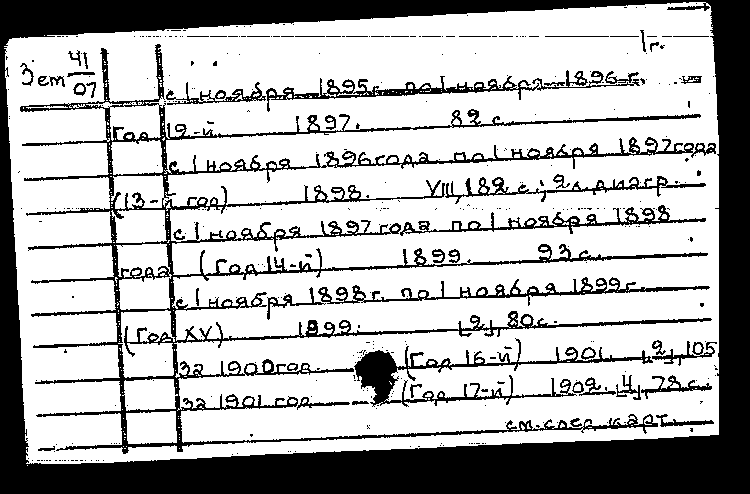 1г.
Зет 41/07
с 1 ноября 1895г. по 1 ноября 1896 г.
год 12-й. 1897. 82 с.
с 1 ноября 1896 года по 1 ноября 1897 года
(13-й год) 1898. VIII, 182 с.; 2 л. диагр.
с 1 ноября 1897 года по 1 ноября 1898
года (Год 14-й) 1899. 93 с.
с 1 ноября 1898 г. по 1 ноября 1899 г.
(Год XV). 1899. [2], 80 с.
за 1900 год. (Год 16-й) 1901. [2], 105
за 1901 год (Год 17-й) 1902. [4], 73 с.
см. след. карт.